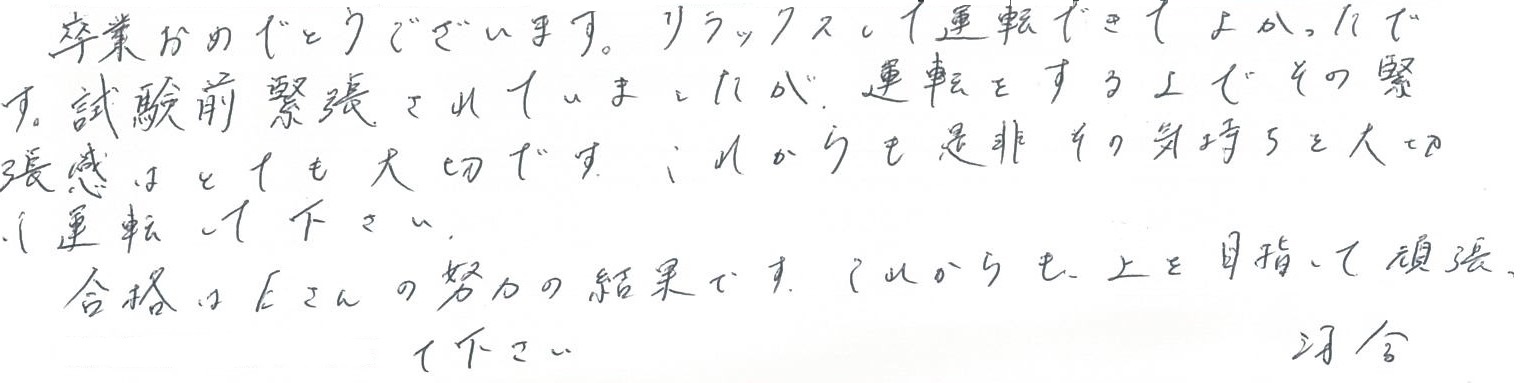 卒業おめでとうございます。リラックスして運転できてよかったで
す。試験前緊張されていましたが、運転をする上でその緊
張感はとても大切です。これからも是非その気持ちを大切
に運転して下さい。
合格はEさんの努力の結果です。これからも、上を目指して頑張っ
て下さい
河合